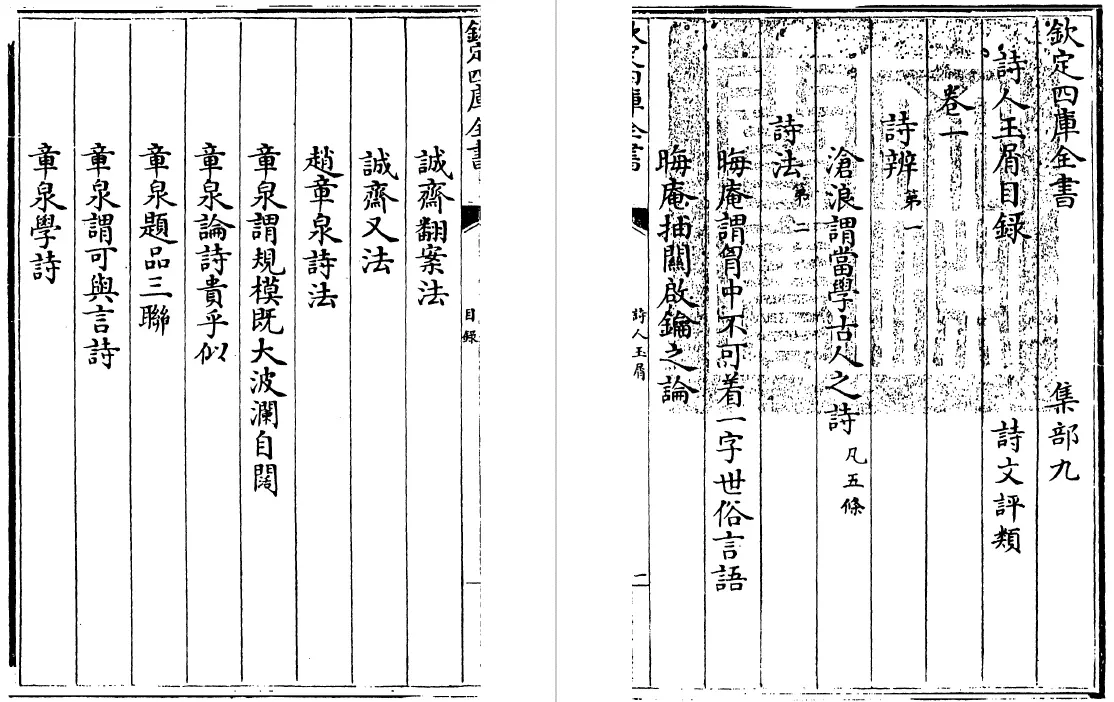 欽定四庫全書 集部九
詩人玉屑目録 詩文評類
卷一
詩辨第一
滄浪謂當學古人之詩凡五條
詩法第二
晦庵謂胷中不可着一字世俗言語
晦庵抽關啟鑰之論
詩人玉屑
二
欽定四庫全書
目録
誠齋翻案法
誠齋又法
趙章泉詩法
章泉謂規模既大波瀾自闊
章泉論詩貴乎似
章泉題品三聯
章泉謂可與言詩
章泉學詩